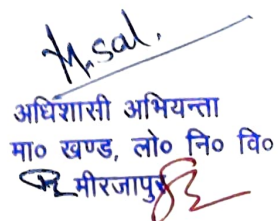 अधिशासी अभियन्ता
मा० खण्ड, लो० नि० वि०
मीरजापुर